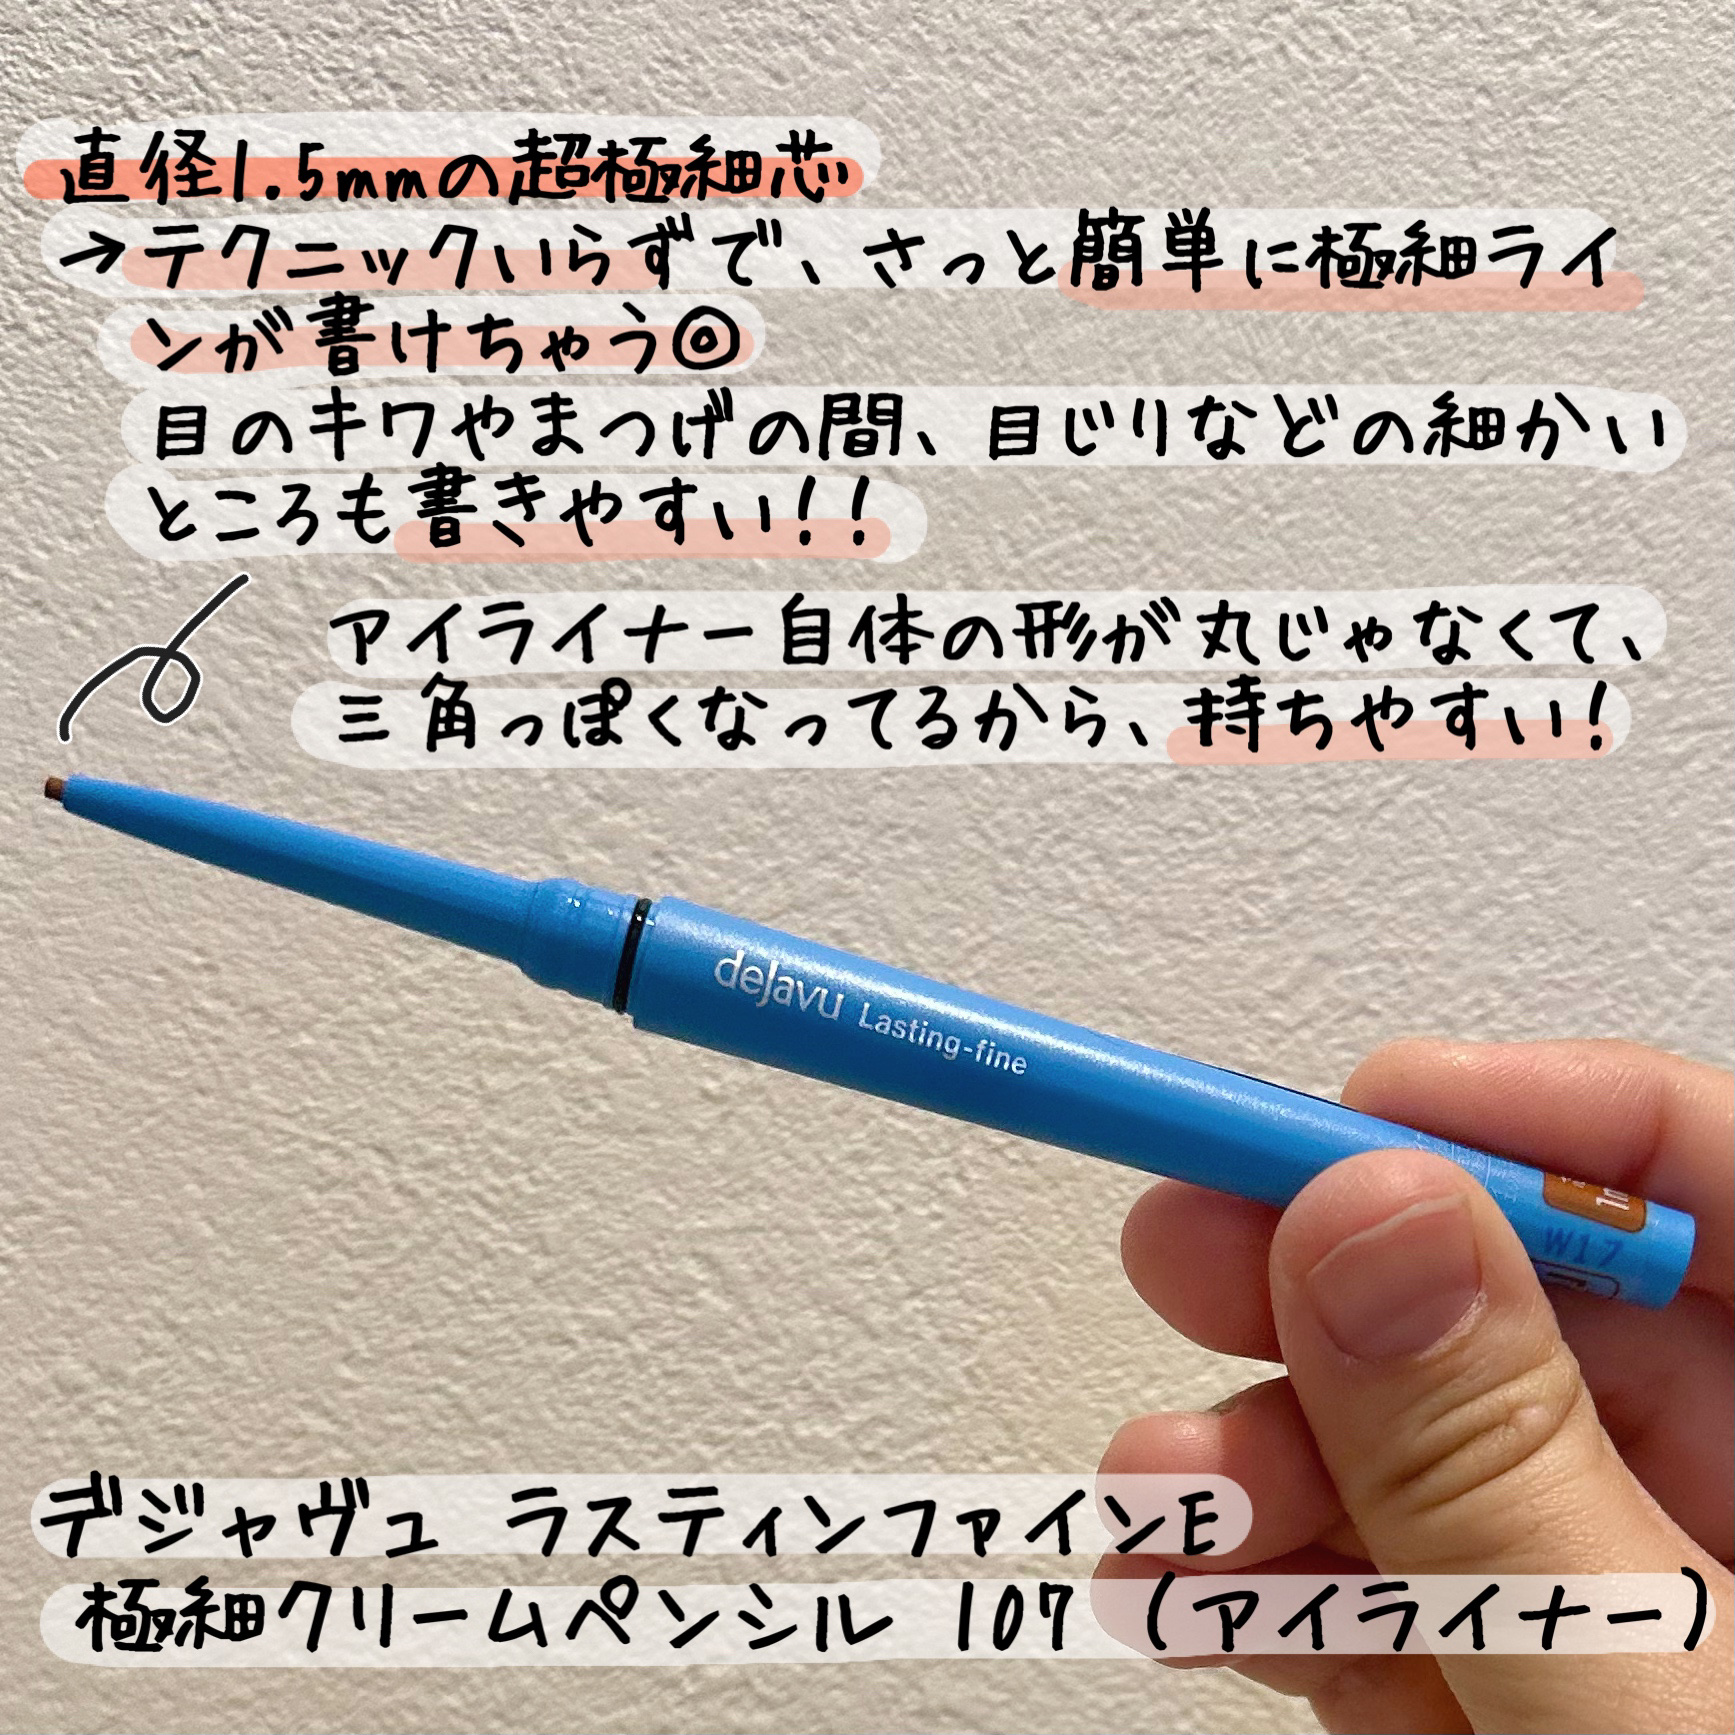 直径1.5mmの超極細芯
→テクニックいらずで、さっと簡単に極細ライ
ンが書けちゃう◎
目のキワやまつげの間、目じりなどの細かい
ところも書きやすい!!
アイライナー自体の形が丸じゃなくて、
三角っぽくなってるから、持ちやすい!
dejavu Lasting-fine
W17
デジャヴュ ラスティンファインE
極細クリームペンシル 107 (アイライナー)